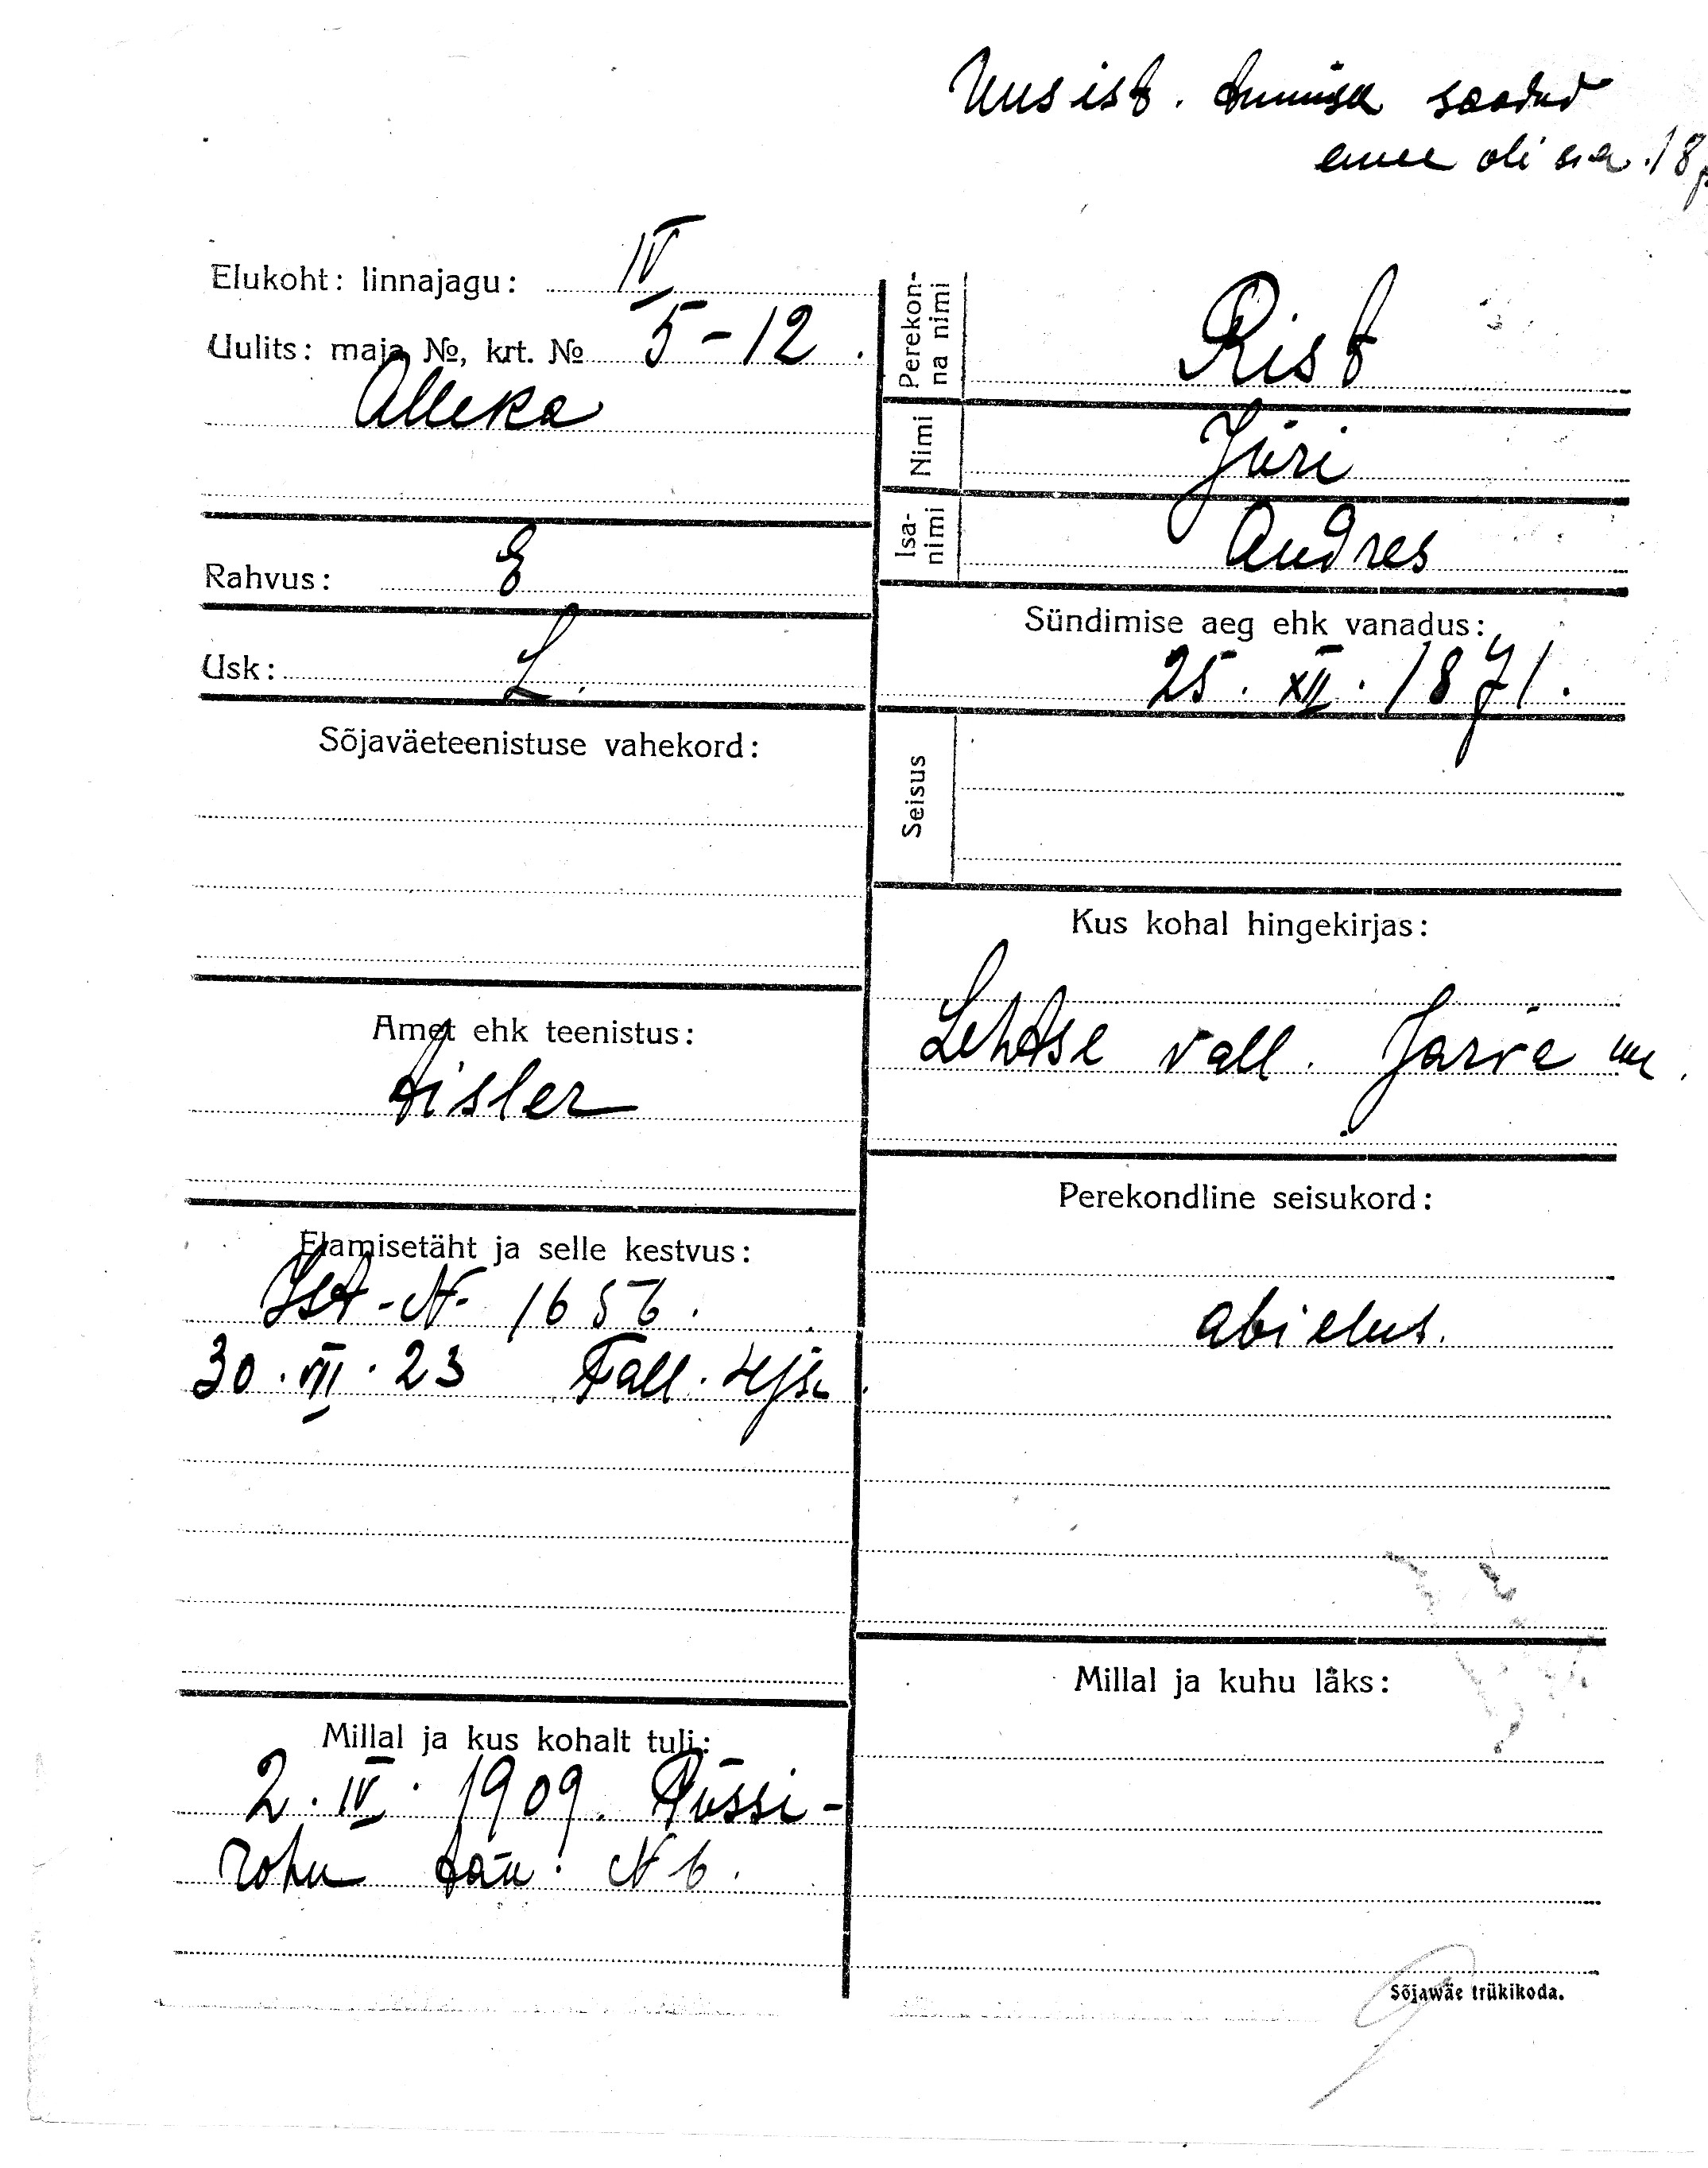 Uus ist. saadud
enne oli sia. 18
Elukoht: linnajagu: IV
Uulits: maja №, krt. № 5-12.
Alleka
Rahvus: E
Usk: L.
Sõjaväeteenistuse vahekord:
Amet ehk teenistus:
tisler
Elamisetäht ja selle kestvus:
Ist-N- 1656.
30. VII. 23 Tall.
Millal ja kus kohalt tuli:
2. IV. 1909. Püssi-
rohu tän. N 6.
Perekon-
na nimi
Rist
Nimi
Jüri
Isa-
nimi
Andres
Sündimise aeg ehk vanadus:
25. XII. 1871.
Seisus
Kus kohal hingekirjas:
Lehtse vall. Järva m.
Perekondline seisukord:
abielus.
Millal ja kuhu läks:
Sõjawäe trükikoda.